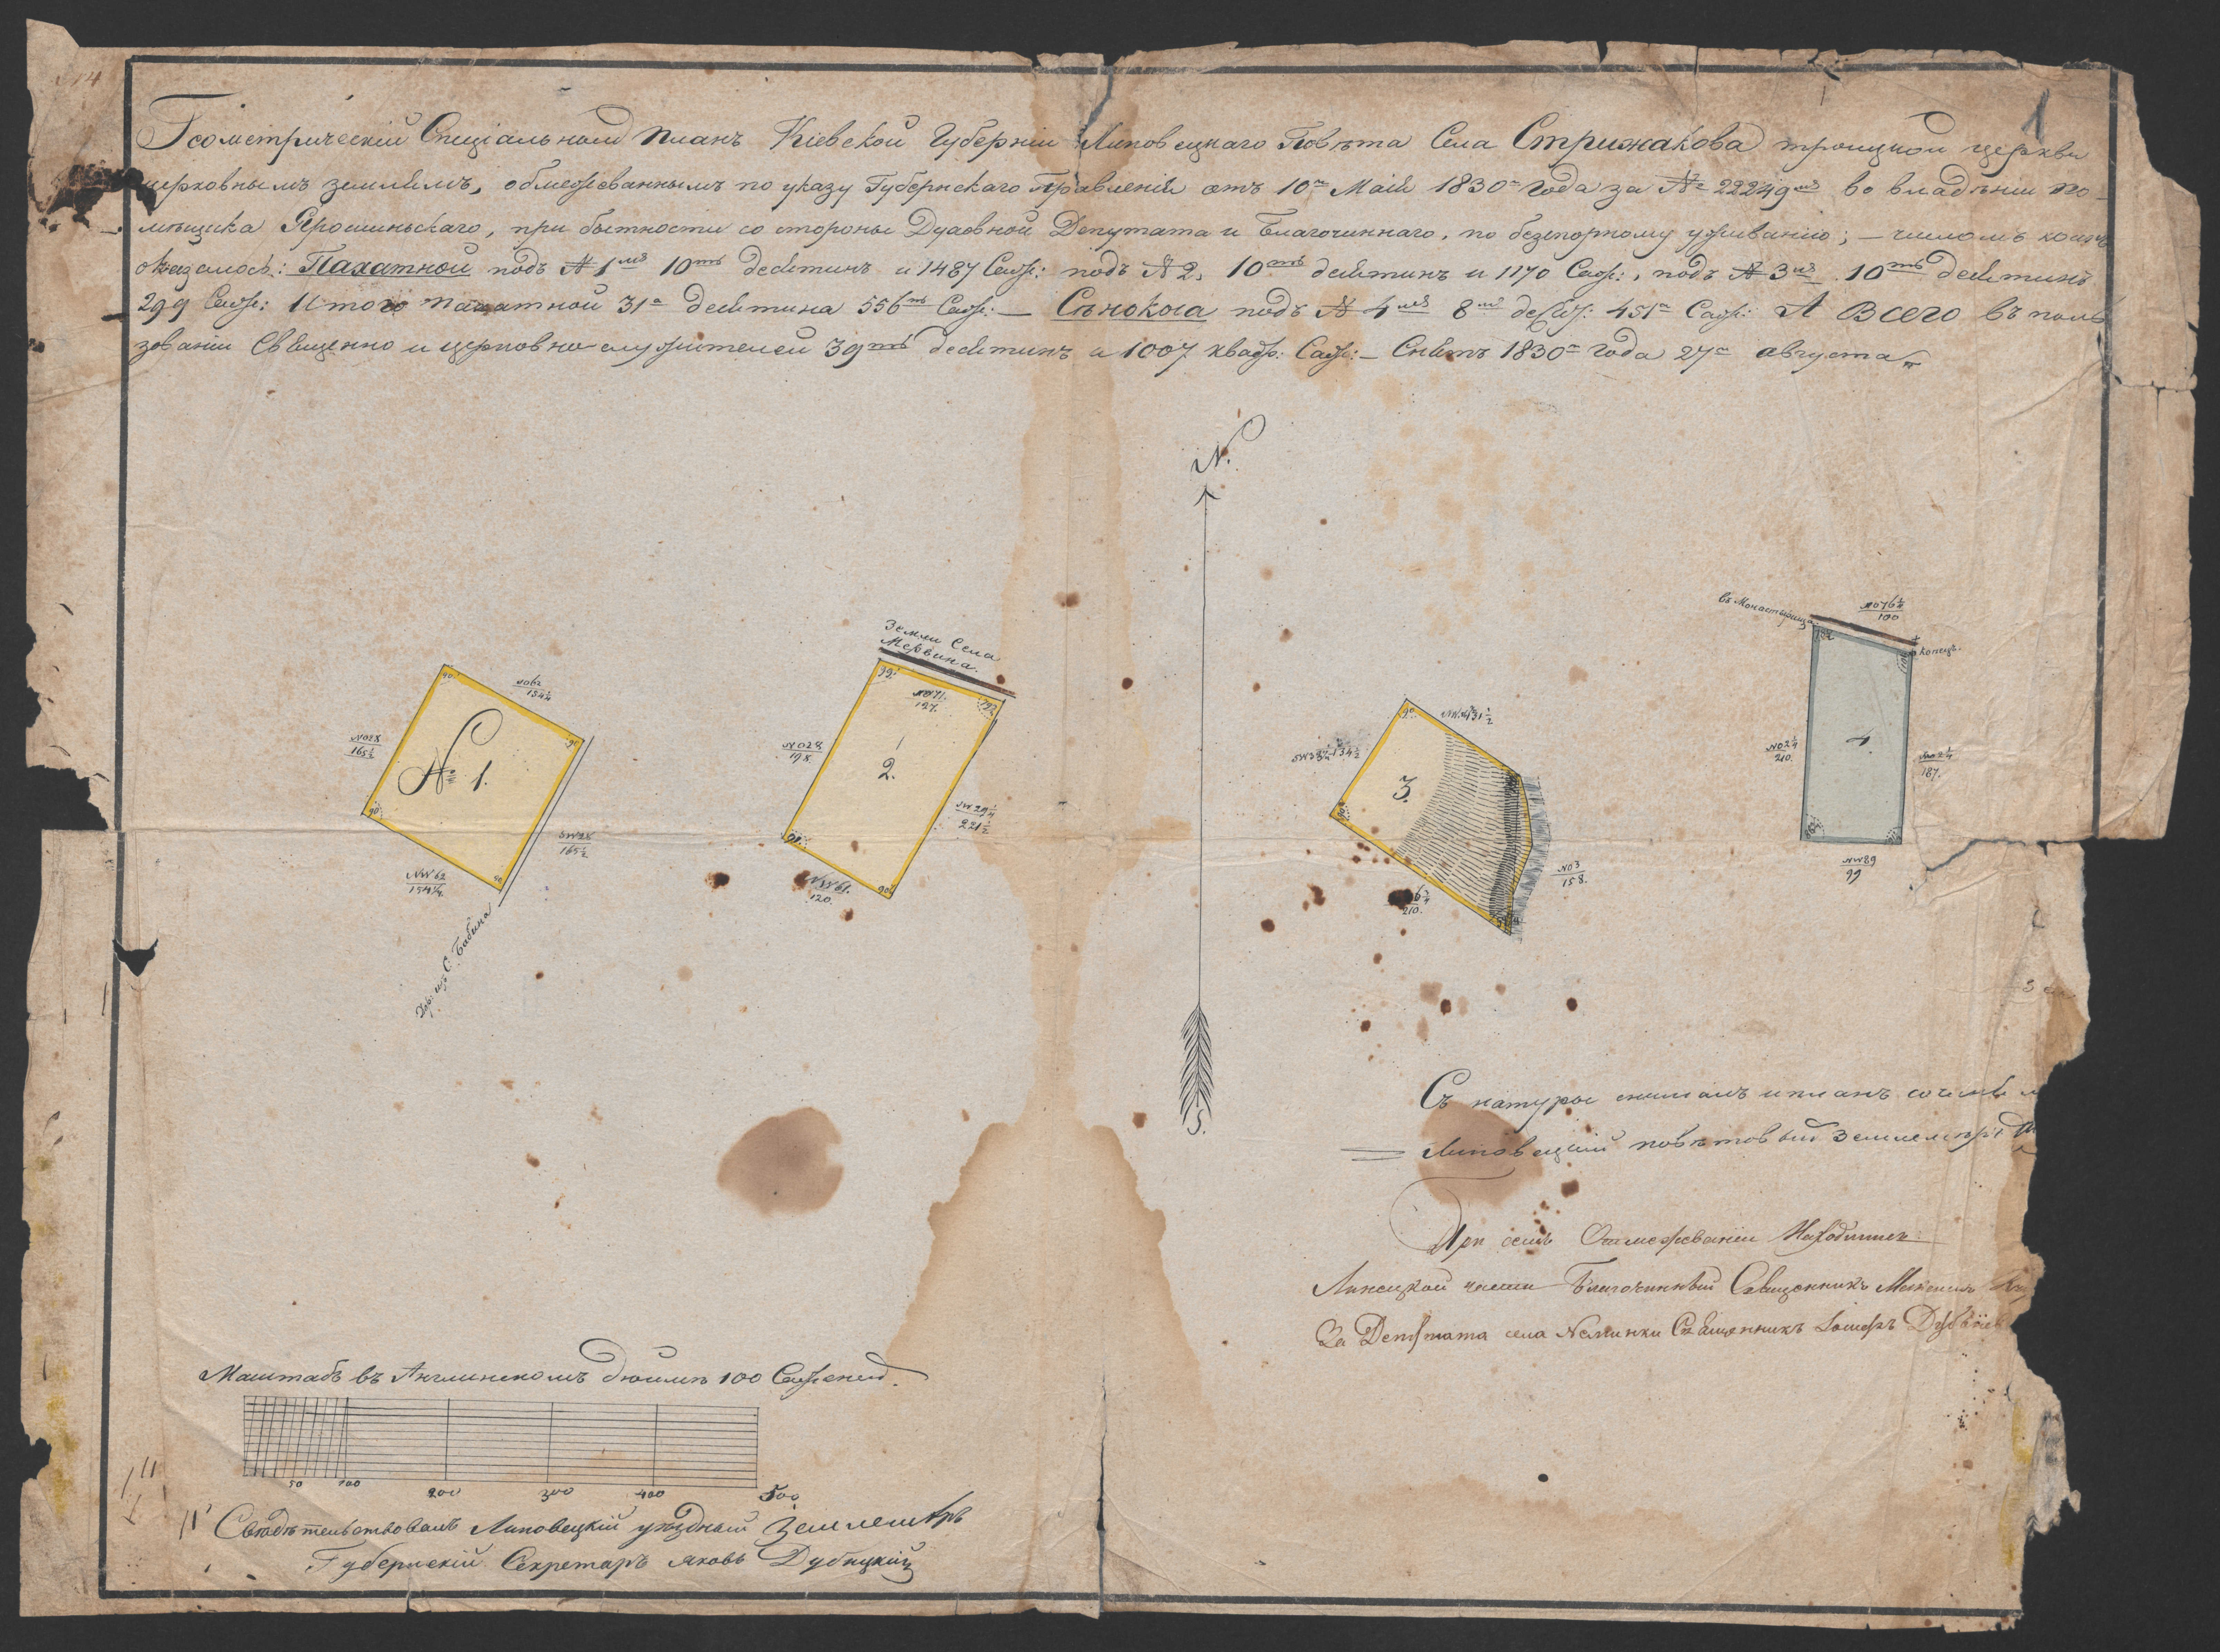 Геометрическiй Спецiальной планъ Кiевской Губернiи Липовецкаго Повѣта Села Стрижакова троицкой церкви
церковнымъ землямъ, обмежеваннымъ по указу Губернскаго Правленiя отъ 10го Маiя 1830го Года за №. 22249мъ во владѣнiи по-
мѣщика Ярошиньскаго, при бытности со стороны Духовной Депутата и Благочиннаго, по безспорному уживанiю; – числомъ коихъ
оказалось: Пахатной подъ №1мъ 10ть десятинъ и 1487 Саж: подъ №2, 10ть десятинъ и 1170 Саж:, подъ №3мъ 10ть десятинъ
299 Саж: Итого пахатной 31а десятина 556ть Саж: – Сѣнокоса подъ №4мъ 8мъ деся: 451а Саж: А Всего въ поль
зованiи Священно и церковно служителей 39ть десятинъ и 1007 квадр: Саж: – Снятъ 1830го года 27го августа
N.
въ Монастырища.
NO76½
100
Копецъ.
Земли Села
Мервина.
NO62
154¼
NO28
165½
№ 1.
90.
SW28
165½
NW62
154¼
Дор: изъ С: Бабина
99.
NO71.
127.
NO28
198.
2.
NW29¼
221½
NW61.
120.
90.
3.
NO3
158.
210.
NO2¼
210.
4.
NO2¼
187.
NW89
99
S.
Съ натуры снималъ и планъ сочин
Липовецкiй повѣтовый Землемѣръ
При семъ Отмежеванiи Находился
Липецкой части Благочинный Священникъ Максимъ
За Депутата села Неминки Священникъ Iосифъ
Маштабъ въ Англинскомъ дюймѣ 100 Саженей.
50 100 200 300 400 500
Свѣдѣтельствовалъ Липовецкiй уѣздный Землемѣръ
Губернскiй Секретаръ Яковъ Дубицкiй